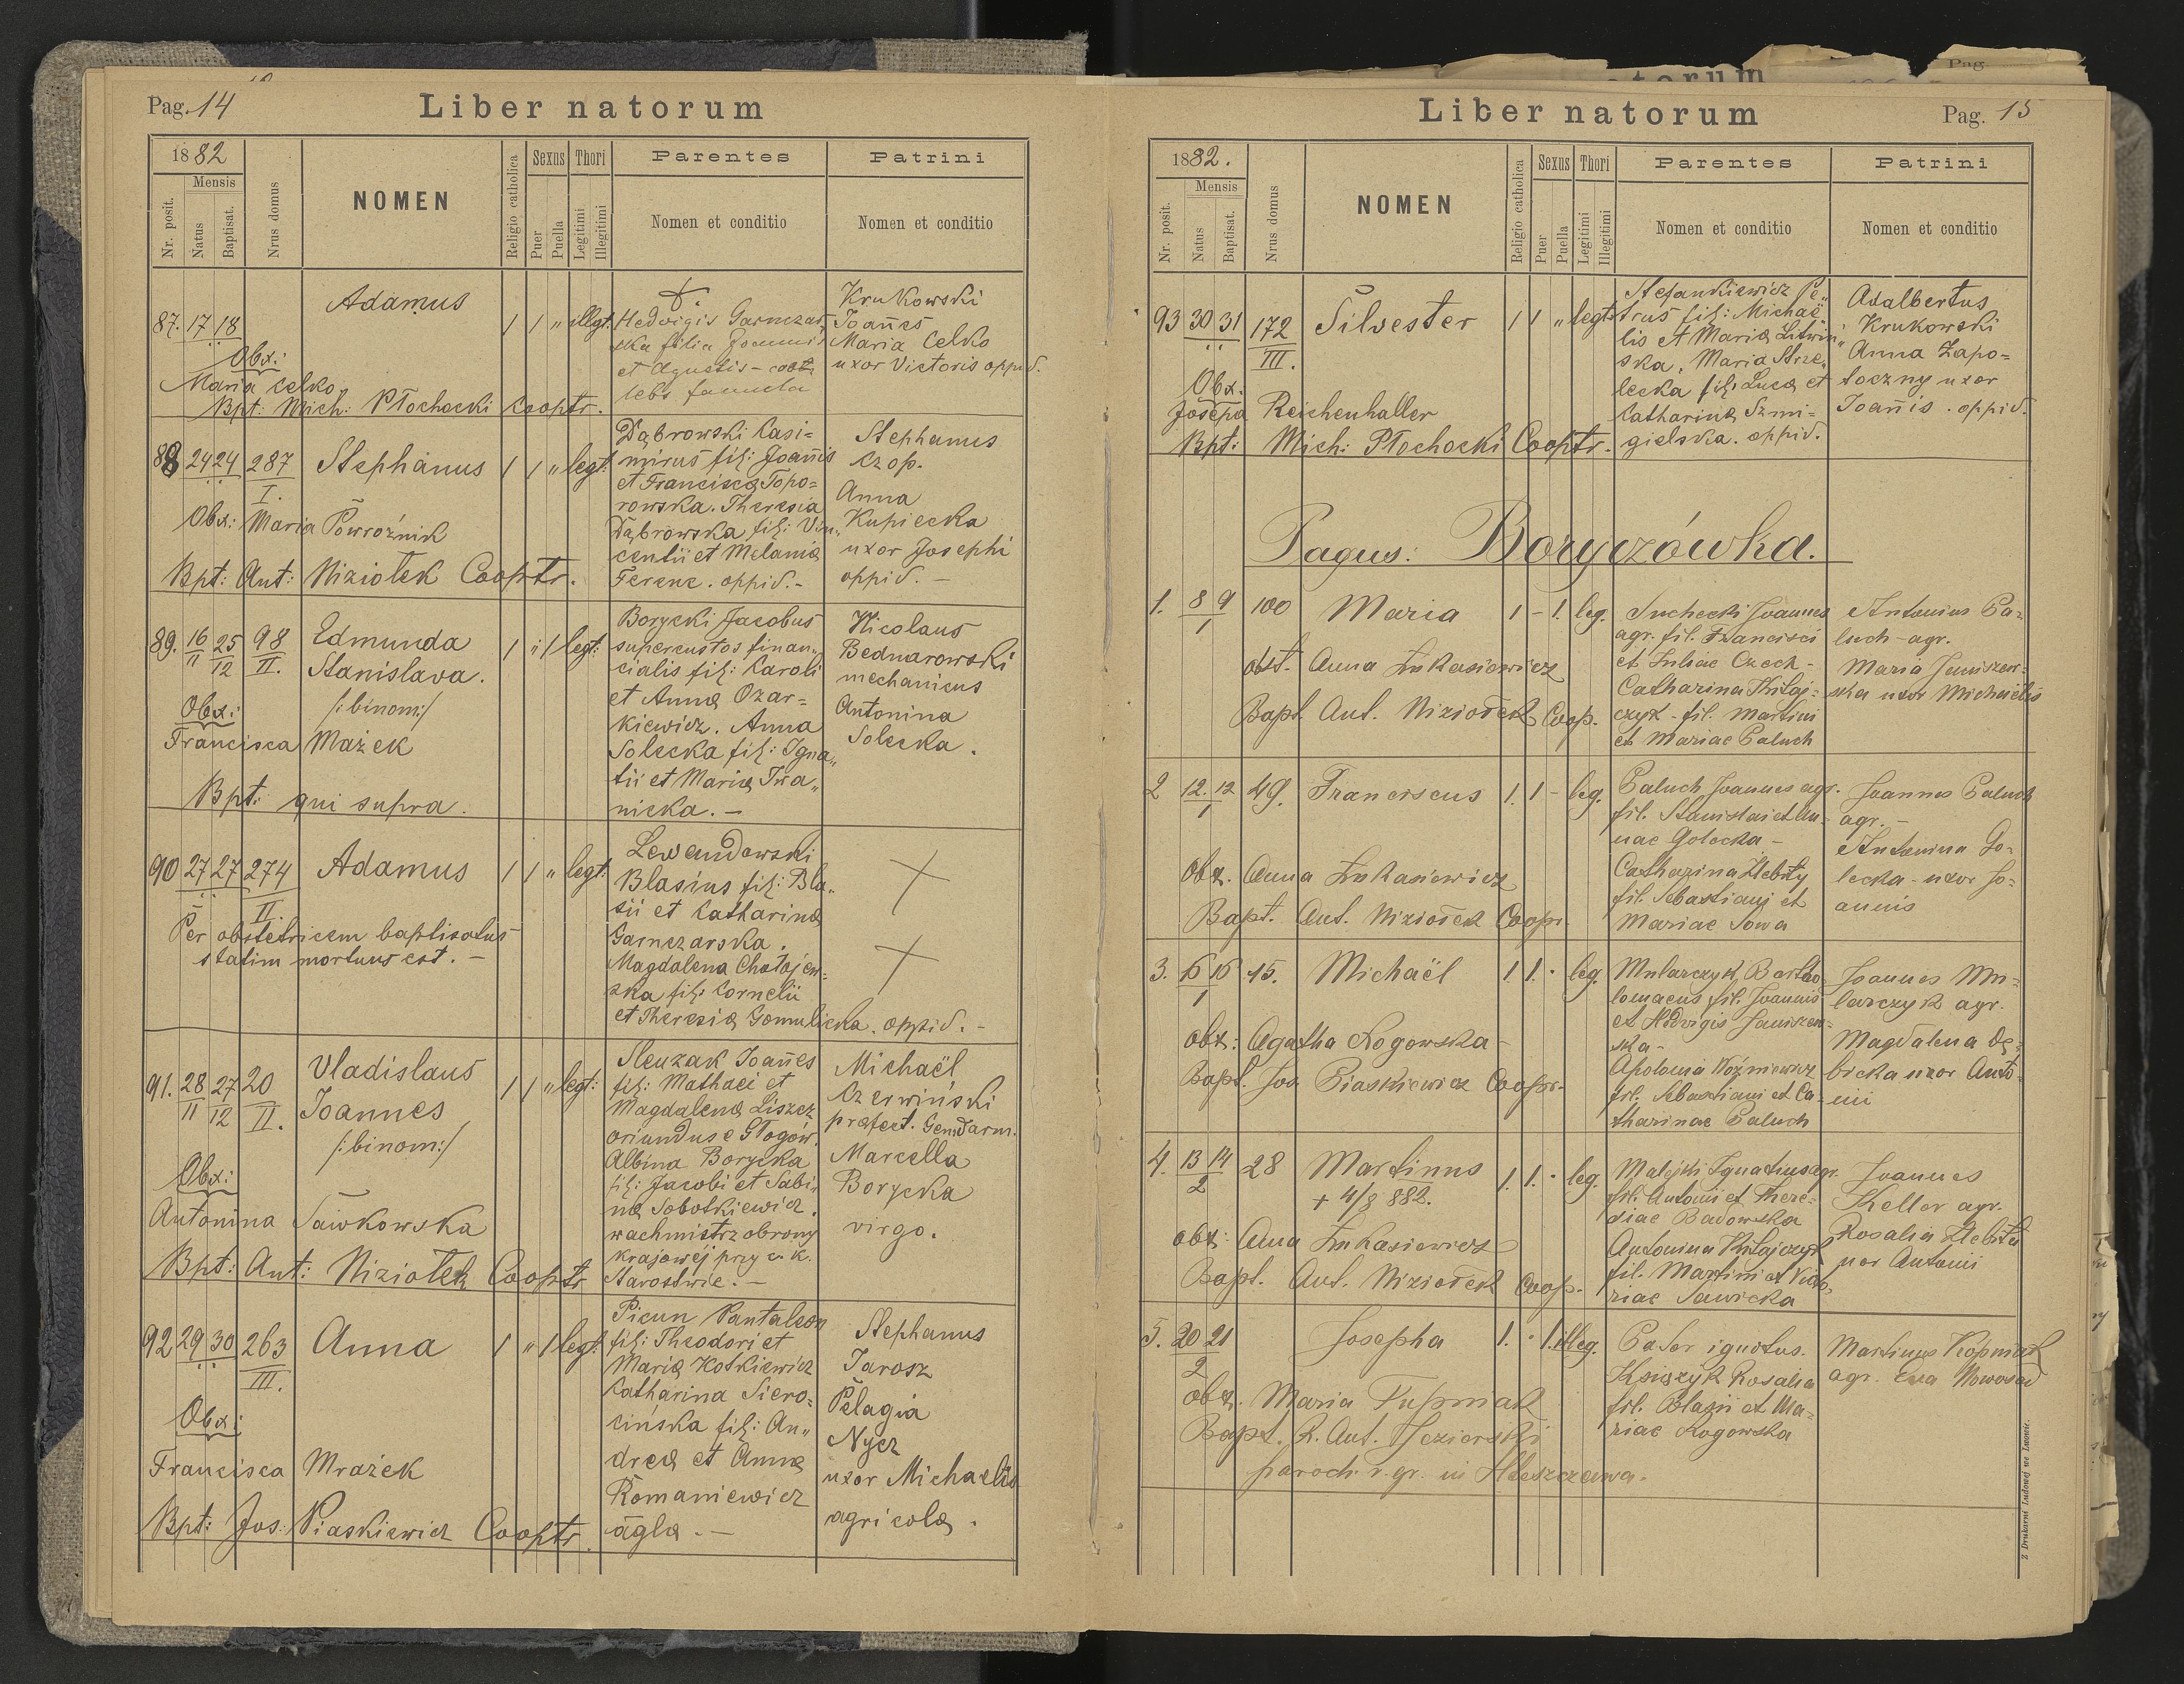 Pag. 14
Liber natorum
1882
Mensis
Nr. posit.
Natus
Baptisat.
Nrus domus
NOMEN
Religio catholica
Sexus
Puer
Puella
Thori
Legitimi
Illegitimi
Parentes
Nomen et conditio
Patrini
Nomen et conditio
87. 17 18
Adamus
1 1 " illgt.
Hedvigis Garnczar„
ska filia Joannis
et Agnetis - coe
lebs famula
Krukowski
Joañes
Maria Celko
uxor Victoris oppid.
Obx:
Maria Celko
Bpt: Mich: Płochocki Cooptr.
88 24 24 287
I.
Stephanus
1 1 " legt:
Dąbrowski Casi=
mirus fil: Joañis
et Franciscæ Topo=
rowska. Theresia
Dąbrowska fil: Vin„
centii et Melaniæ
Ferenc. oppid. -
Stephanus
Czop.
Anna
Kupiecka
uxor Josephi
oppid. -
Obx: Maria Powroźnik
Bpt: Ant: Niziołek Cooptr.
89. 16 25 98
11 12 II.
Edmunda
Stanislava.
/:binom:/
1 " 1 legt:
Borycki Jacobus
supercustos finan„
cialis fil: Caroli
et Annæ Ozar=
kiewicz. Anna
Solecka fil: Igna„
tii et Mariæ Iwa„
nicka. -
Nicolaus
Bednarowski
mechanicus
Antonina
Solecka.
Obx:
Francisca Mażek
Bpt: qui supra.
90 27 27 274
II.
Adamus
1 1 " legt:
Lewandowski
Blasius fil: Bla„
sii et Catharinæ
Garnczarska.
Magdalena Chołojew=
ska fil: Cornelii
et Theresiæ Gomulicka. oppid. -
Per obstetricem baptisatus
statim mortuus est. -
91. 28 27 20
11 12 II.
Vladislaus
Joannes
/:binom:/
1 1 " legt:
Sleuzak Joañes
fil: Mathaei et
Magdalenæ Liszcz
oriundus e Głogów.
Albina Borycka
fil: Jacobi et Sabi„
næ Sobotkiewicz.
wachmistrz obrony
krajowej przy c. k.
Starostwie. -
Michaël
Czerwiński
præfect. Gendarm.
Marcella
Borycka
virgo.
Obx:
Antonina Sawkowska
Bpt: Ant: Niziołek Cooptr
92 29 30 263
III.
Anna
1 " 1 legt:
Picun Pantaleon
fil: Theodori et
Mariæ Kotkiewicz
Catharina Siero=
cińska fil: An„
dreæ et Annæ
Romaniewicz
aglæ. -
Stephanus
Jarosz
Pelagia
Nycz
uxor Michaelis
agricolæ.
Obx:
Francisca Mrażek
Bpt: Jos: Piaskiewicz Cooptr.
Liber natorum
Pag. 15
1882.
Mensis
Nr. posit.
Natus
Baptisat.
Nrus domus
NOMEN
Religio catholica
Sexus
Puer
Puella
Thori
Legitimi
Illegitimi
Parentes
Nomen et conditio
Patrini
Nomen et conditio
93 30 31 172
III.
Silvester
1 1 " legt:
Stefankiewicz Pe„
trus fil: Michaë„
lis et Mariæ Litwiń„
ska, Maria Strze„
lecka fil: Lucæ et
Catharinæ Szmi-
gielska. oppid.
Adalbertus
Krukowski
Anna Zapo=
toczny uxor
Joañis. oppid.
Obx:
Josepa Reichenhaller
Bpt: Mich: Płochocki Cooptr.
Pagus: Boryczówka.
1. 8 9 100
1
Maria
1 - 1. leg.
Suchecki Joannes
agr. fil. Francisci
et Juliae Czech -
Catharina Kitaj=
czyk - fil. Martini
et Mariae Paluch
Antonius Pa=
luch - agr.
Maria Janiszew=
ska uxor Michaëlis
obst. Anna Łukasiewicz
Bapt. Ant. Niziołek Coop.
2 12. 12 49.
1
Franciscus
1. 1 - leg.
Paluch Joannes agr.
fil. Stanislai et An=
nae Golecka -
Catharina Hlebity
fil. Sebastiani et
Mariae Sowa
Joannes Paluch
agr. -
Antonina Go=
lecka - uxor Jo=
annis
obx. Anna Łukasiewicz
Bapt. Ant. Niziołek Coopr.
3. 16 16 15.
1
Michaël
1. 1. · leg.
Mularczyk Bartho
lomaeus fil. Joannis
et Hedvigis Janiszew=
ska -
Apolonia Woźniewicz
fil. Sebastiani et Ca=
tharinae Paluch
Joannes Mu=
larczyk agr.
Magdalena Dę=
bicka uxor Anto=
nii
obx: Agatha Rogowska -
Bapt. Jos Piaskiewicz Coopr.
4. 13 14 28
2
Martinus
+ 4/8 882.
1. 1. · leg.
Malejki Ignatius agr.
fil. Antonii et There=
siae Badowska
Antonina Kitajczyk
fil. Martini et Victo„
riae Sawicka
Joannes
Keller agr.
Rosalia Hlebita
uxor Antonii
obx: Anna Łukasiewicz
Bapt. Ant. Niziołek Coop.
5. 20 21
2
Josepha
1. · 1. illeg.
Pater ignotus.
Księżyk Rosalia
fil. Blazii et Ma=
riae Rogowska
Martinus Kopniak
agr. Eva Nowosad
obx. Maria Tupniak
Bapt. R. Ant. Jezierski
paroch. r. gr. in Hleszczawa.
Z Drukarni Ludowej we Lwowie.